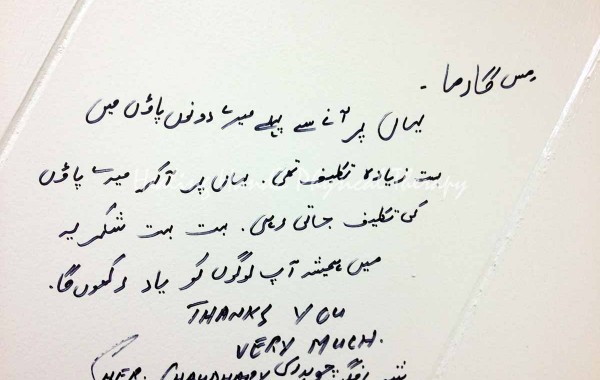 مس گارما -
یہاں پر آنے سے پہلے میرے دونوں پاؤں میں
بہت زیادہ تکلیف تھی. یہاں پر آکر میرے پاؤں
کی تکلیف جاتی رہی. بہت بہت شکریہ
میں ہمیشہ آپ لوگوں کو یاد رکھوں گا.
THANKS YOU
VERY MUCH.
چوہدری
CHAUDHARY